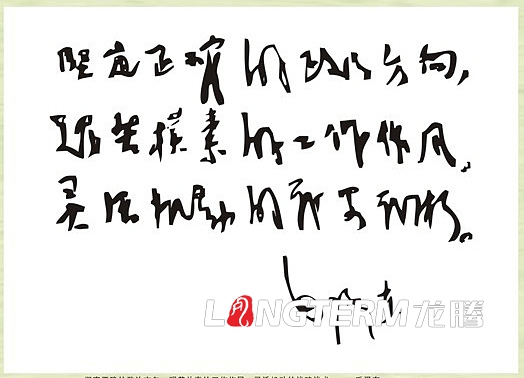 坚定正确的政治方向,
艰苦樸素的工作作风,
灵活机动的战略战术。
毛泽东
LONGTERM龙腾